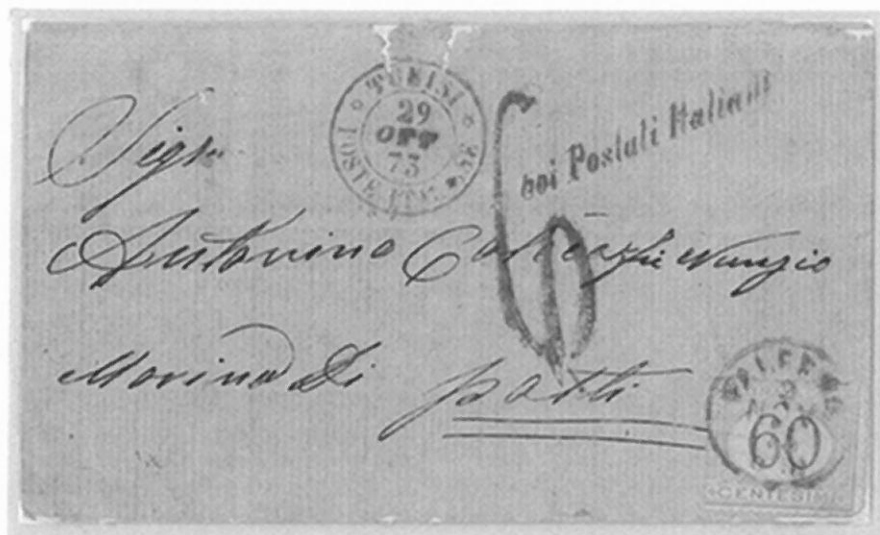 TUNISI
29
OTT
73
POSTE ITAL
6
coi Postali Italiani
Sigr
Antonino
fu Nunzio
Marina Di
patti
PALERMO
2
60
CENTESIMI